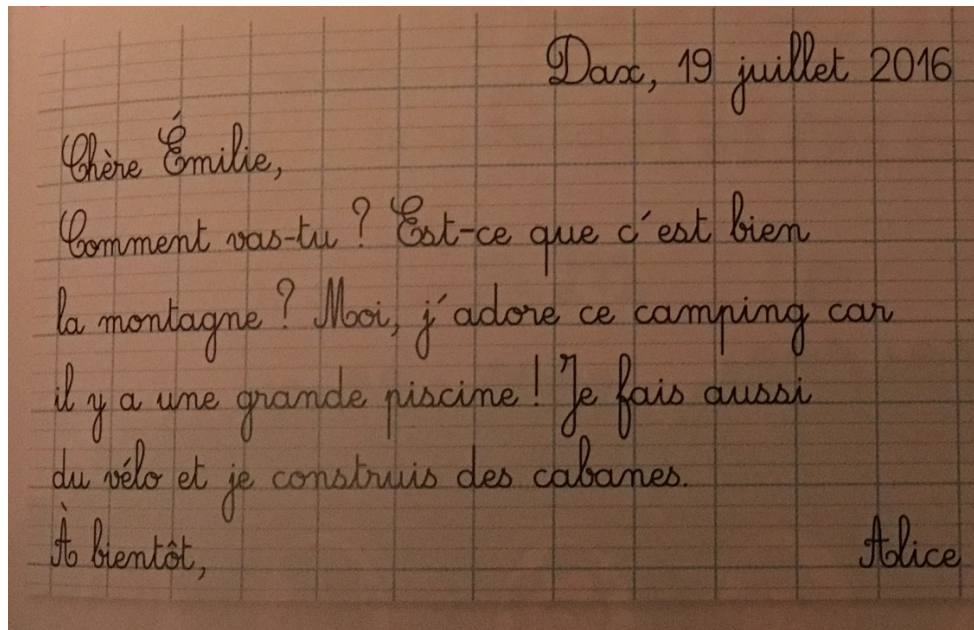 Dax, 19 juillet 2016
Chère Émilie,
Comment vas-tu ? Est-ce que c'est bien
la montagne ? Moi, j'adore ce camping car
il y a une grande piscine ! Je fais aussi
du vélo et je construis des cabanes.
À bientôt, Alice